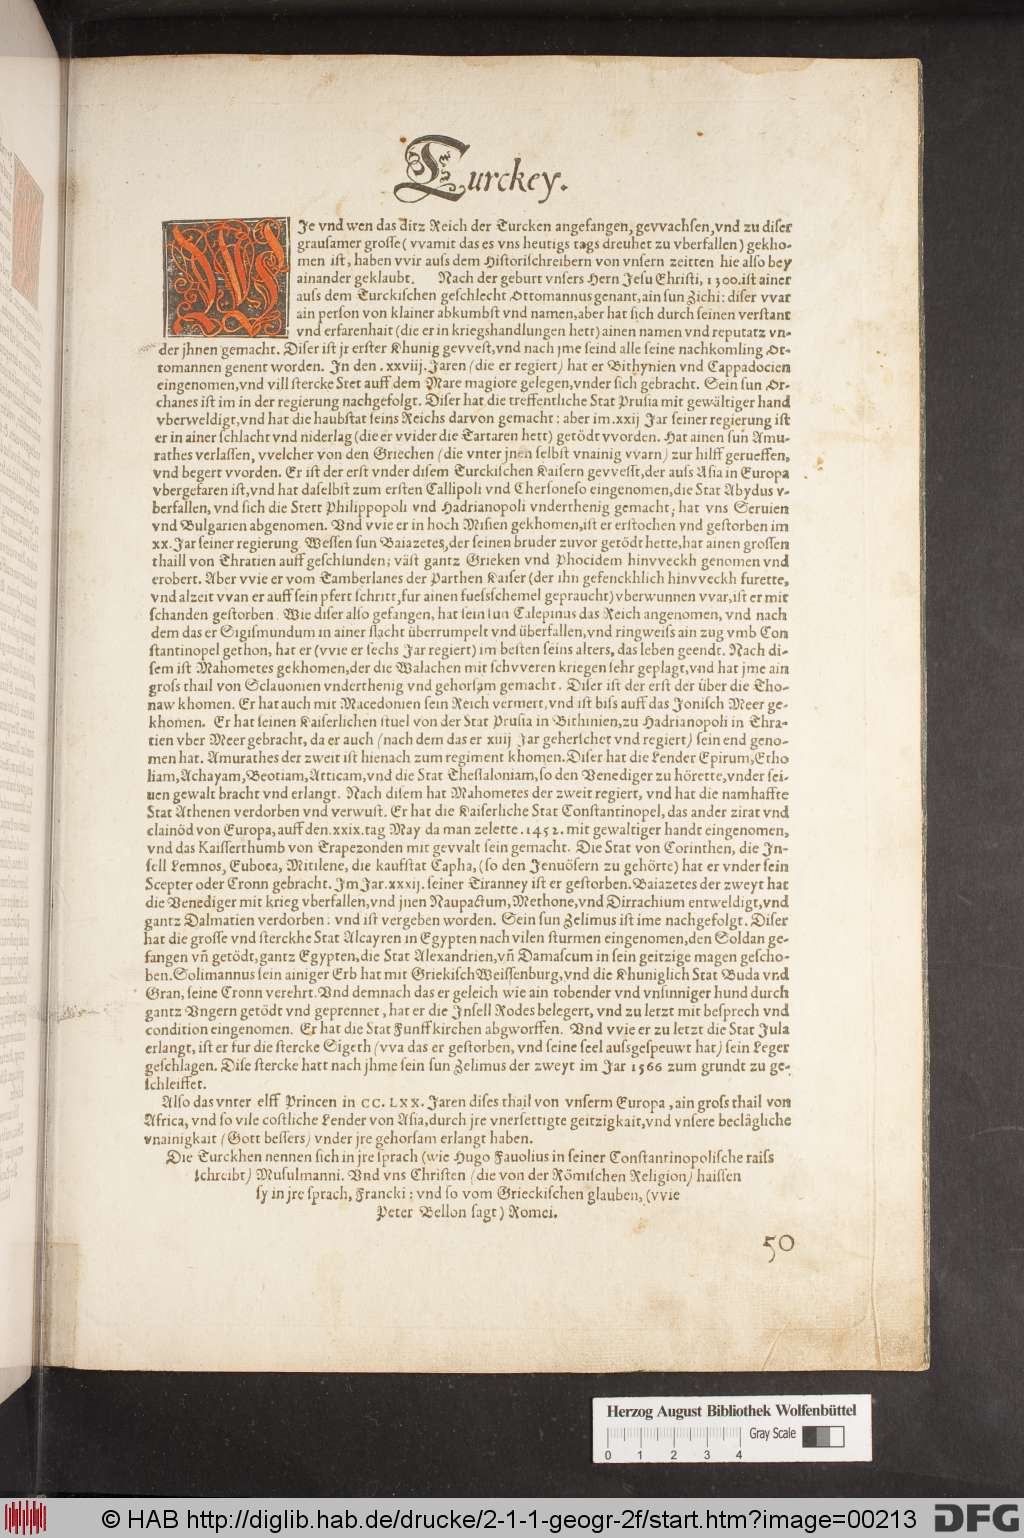 Turckey.
WJe vnd wen das ditz Reich der Turcken angefangen, gevvachsen, vnd zu diser
grausamer grosse ( vvamit das es vns heutigs tags dreuhet zu vberfallen ) gekho-
men ist, haben vvir auss dem Historischreibern von vnsern zeitten hie also bey
ainander geklaubt. Nach der geburt vnsers Hern Jesu Christi, 1300. ist ainer
auss dem Turckischen geschlecht Ottomannus genant, ain sun Zichi: diser vvar
ain person von klainer abkumbst vnd namen, aber hat sich durch seinen verstant
vnd erfarenhait (die er in kriegshandlungen hett) ainen namen vnd reputatz vn-
der jhnen gemacht. Diser ist jr erster Khunig gevvest, vnd nach jme seind alle seine nachkomling Ot-
tomannen genent worden. In den .xxviij. Jaren (die er regiert) hat er Bithynien vnd Cappadocien
eingenomen, vnd vill stercke Stet auff dem Mare magiore gelegen, vnder sich gebracht. Sein sun Or-
chanes ist im in der regierung nachgefolgt. Diser hat die treffentliche Stat Prusia mit gewältiger hand
vberweldigt, vnd hat die haubstat seins Reichs darvon gemacht: aber im .xxij Jar seiner regierung ist
er in ainer schlacht vnd niderlag (die er vvider die Tartaren hett) getödt vvorden. Hat ainen sun Amu-
rathes verlassen, vvelcher von den Griechen (die vnter jnen selbst vnainig vvarn) zur hilff gerueffen,
vnd begert vvorden. Er ist der erst vnder disem Turckischen Kaisern gevvesst, der auss Asia in Europa
vbergefaren ist, vnd hat daselbst zum ersten Callipoli vnd Chersoneso eingenomen, die Stat Abydus v-
berfallen, vnd sich die Stett Philippopoli vnd Hadrianopoli vnderthenig gemacht, hat vns Seruien
vnd Bulgarien abgenomen. Vnd vvie er in hoch Misien gekhomen, ist er erstochen vnd gestorben im
xx. Jar seiner regierung Wessen sun Baiazetes, der seinen bruder zuvor getödt hette, hat ainen grossen
thaill von Thratien auff geschlunden; väst gantz Grieken vnd Phocidem hinvveckh genomen vnd
erobert. Aber vvie er vom Tamberlanes der Parthen Kaiser (der ihn gefenckhlich hinvveckh furette,
vnd alzeit vvan er auff sein pfert schritt, fur ainen fuessschemel gepraucht) vberwunnen vvar, ist er mit
schanden gestorben. Wie diser also gefangen, hat sein sun Calepinus das Reich angenomen, vnd nach
dem das er Sigismundum in ainer slacht überrumpelt vnd überfallen, vnd ringweiss ain zug vmb Con
stantinopel gethon, hat er (vvie er sechs Jar regiert) im besten seins alters, das leben geendt. Nach di-
sem ist Mahometes gekhomen, der die Walachen mit schvveren kriegen sehr geplagt, vnd hat jme ain
gross thail von Sclauonien vnderthenig vnd gehorsam gemacht. Diser ist der erst der über die Tho-
naw khomen. Er hat auch mit Macedonien sein Reich vermert, vnd ist biss auff das Jonisch Meer ge-
khomen. Er hat seinen Kaiserlichen stuel von der Stat Prusia in Bithinien, zu Hadrianopoli in Thra-
tien vber Meer gebracht, da er auch (nach dem das er xiiij Jar geherschet vnd regiert) sein end geno-
men hat. Amurathes der zweit ist hienach zum regiment khomen. Diser hat die Lender Epirum, Etho
liam, Achayam, Beotiam, Atticam, vnd die Stat Thessaloniam, so den Venediger zu hörette, vnder sei-
nen gewalt bracht vnd erlangt. Nach disem hat Mahometes der zweit regiert, vnd hat die namhaffte
Stat Athenen verdorben vnd verwust. Er hat die Kaiserliche Stat Constantinopel, das ander zirat vnd
clainöd von Europa, auff den .xxix. tag May da man zelette .1452. mit gewaltiger handt eingenomen,
vnd das Kaisserthumb von Trapezonden mit gevvalt sein gemacht. Die Stat von Corinthen, die Jn-
sell Lemnos, Euboea, Mitilene, die kaufstat Capha, (so den Jenuösern zu gehörte) hat er vnder sein
Scepter oder Cronn gebracht. Jm Jar .xxxij. seiner Tiranney ist er gestorben. Baiazetes der zweyt hat
die Venediger mit krieg vberfallen, vnd jnen Naupactum, Methone, vnd Dirrachium entweldigt, vnd
gantz Dalmatien verdorben: vnd ist vergeben worden. Sein sun Zelimus ist ime nachgefolgt. Diser
hat die grosse vnd sterckhe Stat Alcayren in Egypten nach vilen sturmen eingenomen, den Soldan ge-
fangen vñ getödt, gantz Egypten, die Stat Alexandrien, vñ Damascum in sein geitzige magen gescho-
ben. Solimannus sein ainiger Erb hat mit Griekisch Weissenburg, vnd die Khuniglich Stat Buda vnd
Gran, seine Cronn verehrt. Vnd demnach das er geleich wie ain tobender vnd vnsinniger hund durch
gantz Vngern getödt vnd geprennet, hat er die Jnsell Rodes belegert, vnd zu letzt mit besprech vnd
condition eingenomen. Er hat die Stat Funffkirchen abgworffen. Vnd vvie er zu letzt die Stat Jula
erlangt, ist er fur die stercke Sigeth (vva das er gestorben, vnd seine seel aussgespeuwt hat) sein Leger
geschlagen. Dise stercke hatt nach jhme sein sun Zelimus der zweyt im Jar 1566 zum grundt zu ge-
schleiffet.
Also das vnter elff Princen in CC. LXX. Jaren dises thail von vnserm Europa, ain gross thail von
Africa, vnd so vile costliche Lender von Asia, durch jre vnersettigte geitzigkait, vnd vnsere beclägliche
vnainigkait (Gott bessers) vnder jre gehorsam erlangt haben.
Die Turckhen nennen sich in jre sprach (wie Hugo Fauolius in seiner Constantinopolische raiss
schreibt) Musulmanni. Vnd vns Christen (die von der Römischen Religion) haissen
sy in jre sprach, Francki: vnd so vom Grieckischen glauben, (vvie
Peter Bellon sagt) Romei.
50
Herzog August Bibliothek Wolfenbüttel
Gray Scale
0 1 2 3 4
© HAB http://diglib.hab.de/drucke/2-1-1-geogr-2f/start.htm?image=00213
DFG